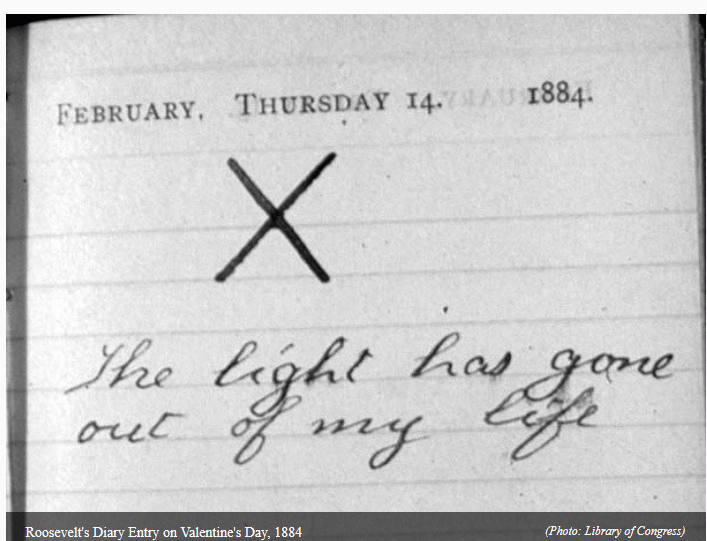 FEBRUARY, THURSDAY 14. 1884.
X
The light has gone
out of my life
Roosevelt's Diary Entry on Valentine's Day, 1884 (Photo: Library of Congress)